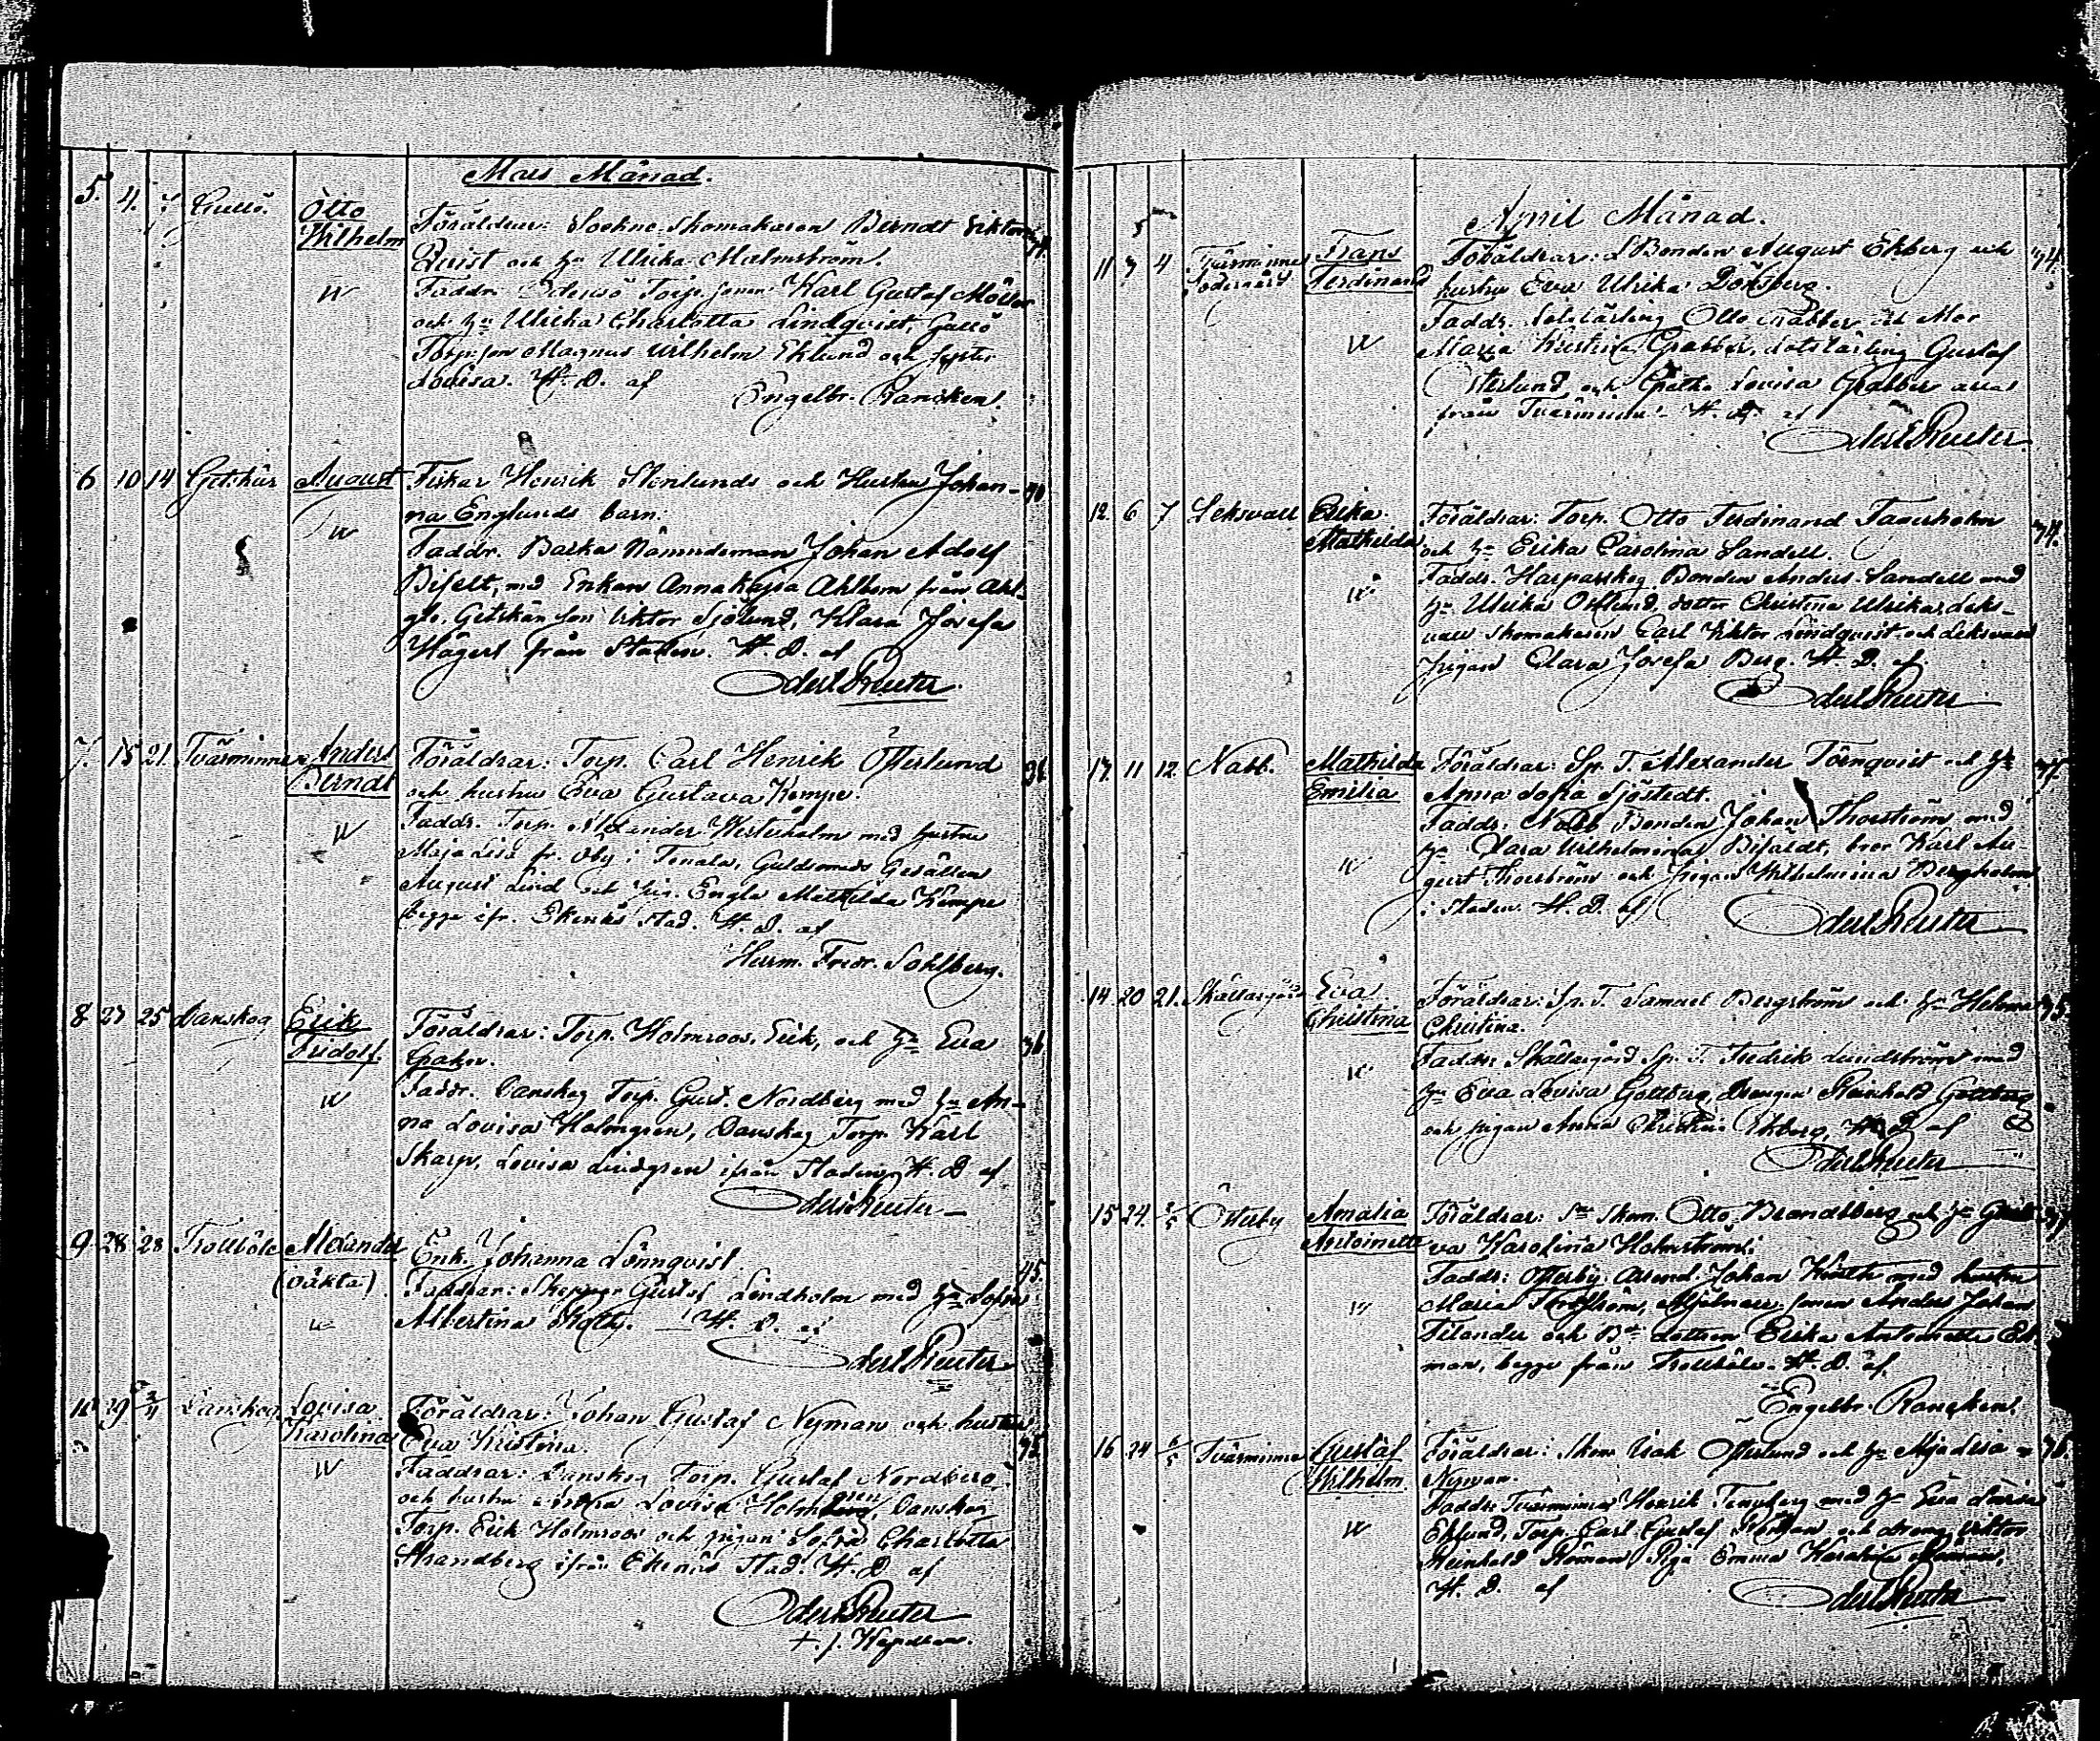 Mars Månad.
5. 4. 7 Gullö. Otto Wilhelm
Föräldrar: Sockne Skomakaren Berndt Viktor
Qvist och hu Ulrika Malmström.
Faddr. Torp. sonen Karl Gustaf
och hu Ulrika Charlotta Lindqvist, Gullö
Torp. son Magnus Wilhelm Eklund och syster
Lovisa. H. D. af
Engelbr. Rancken.
6 10 14 Getskär August
Fiskar Henrik Stenlunds och Hustru Johan-
na Englunds barn.
Faddr. Baska Nämndeman Johan Adolf
Bifelt, med Enkan Anna Kajsa Ahlbom från
Getskär son Viktor Sjölund, Klara Josefa
Hägert från Staden. H. D. af
Odert Reuter.
7. 15 21. Tvärminne Anders Berndt
Föräldrar: Torp. Carl Henrik Österlund
och hustru Eva Gustava Kempe.
Faddr. Torp. Alexander Westerholm med hustru
Maja Lisa fr. Åby i Tenala, Guldsmeds Gesällen
August Lind och pig. Engla Mathilda Kempe
begge ifr. Ekenäs Stad. H. D. af
Herm. Fredr. Sohlberg.
8 23 25 Danskog Erik Fridolf.
Föräldrar: Torp. Holmroos, Erik, och hu Eva
Faddr. Danskog Torp. Gust. Nordberg med hu An-
na Lovisa Holmgren, Danskog Torp. Karl
Skarp, Lovisa Lindgren ifrån Staden. H. D. af
Odert Reuter
9 28 28 Trollböle Alexander (oäkta)
Enk. Johanna Lönnqvist. 45.
Faddrar: Skeppar Gustaf Lindholm med hu Sofia
Albertina. H. D. af
Odert Reuter
10 29 2/4 Danskog Lovisa Karolina
Föräldrar: Johan Gustaf Nyman och hustru
Eva Kristina.
Faddrar: Danskog Torp. Gustaf Nordberg
och hustru Anna Lovisa Holmgren, Danskog
Torp. Erik Holmroos och pigan Sofia Charlotta
Strandberg ifrån Ekenäs Stad. H. D. af
Odert Reuter
April Månad.
11 3 4 Tvärminne Södergård Frans Ferdinand
Föräldrar: Bonden August Ekberg och
hustru Eva Ulrika Dönsberg.
Faddr. Lotslärling Otto Grabber och Mor
Maria Kristina Grabber, Lotslärling Gustaf
Österlund och Lovisa Grabber allas
från Tvärminne. H. D. af
Odert Reuter.
12. 6 7 Leksvall Erika Mathilda
Föräldrar: Torp. Otto Ferdinand
och hu Erika Carolina Sandell.
Faddr. Harparskog Bonden Anders Sandell med
hu Ulrika Östlund, dotter Christina Ulrika, Leks-
vall Skomakaren Carl Viktor Lindqvist och Leksvall
pigan Clara Josefa Berg. H. D. af
Odert Reuter
13. 11 12. Nabb. Mathilda Emilia
Föräldrar: Sp. T. Alexander Törnqvist och hu
Anna Sofia Sjöstedt.
Faddr: Nabb Bonden Johan Thorström med
hu Clara Wilhelmina Bifäldt, bror Karl Au-
gust Thorström och pigan Wilhelmina Bergholm
i Staden. H. D. af
Odert Reuter
14 20 21. Skållargård Eva Christina
Föräldrar: Sp. T. Samuel Bergström och hu Helena
Christina.
Faddr: Skållargård Sp. T. Fredrik Lundström med
hu Eva Lovisa Gottberg, Drengen Reinhold Gottberg
och pigan Anna Christina Ekberg. H. D. af
Odert Reuter
15 24 Österby Amalia Antoinette
Föräldrar: Skom. Otto Brandtberg och hu
Karolina Holmström.
Faddr: Österby Johan med hustru
Maria sonen Anders Johan
Filander och dottren Erika Antoinette Ek-
man, begge från Trollböle. H. D. af
Engelbr. Rancken.
16 24 Tvärminne Gustaf Wilhelm.
Föräldrar: Skom. Isak Österlund och hu Maja Lisa
Nyman.
Faddr: Tvärminne Henrik Tengberg med hu Eva Lovisa
Eklund, Torp. Carl Gustaf och dreng Viktor
Reinhold Piga Emma
H. D. af
Odert Reuter